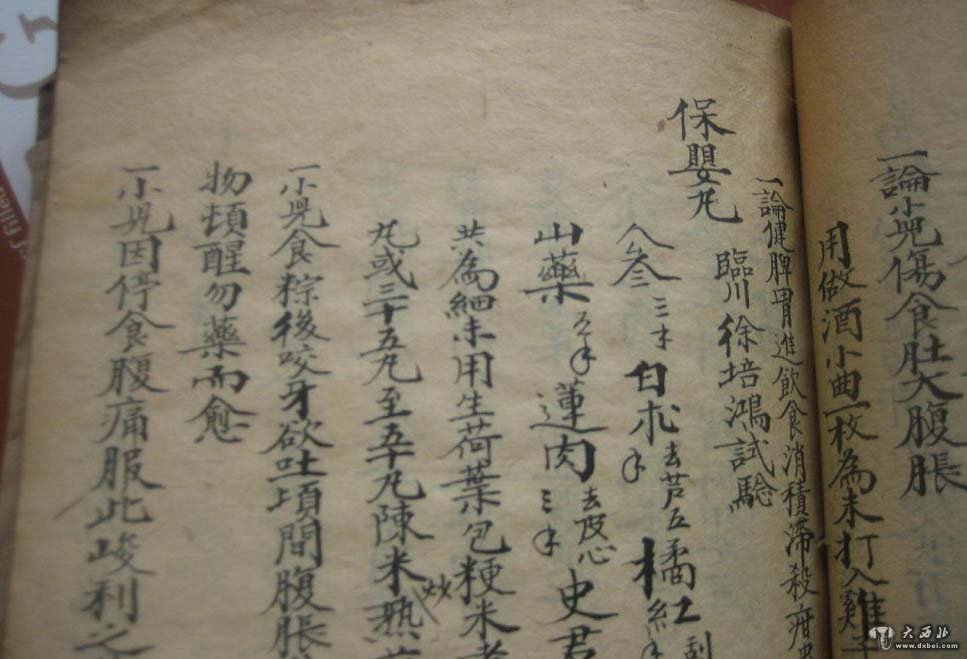 一論小兒傷食肚大腹脹
用做酒小曲一枚為末打入雞
保嬰丸
一論健脾胃進飲食消積滯殺疳
臨川徐培鴻試驗
人參三 白朮 去芦 橘紅
山藥 蓮肉 去皮心 史君
共為細末用生荷葉包粳米
丸或三十五丸至五十丸陳米炒熟
一小兒食粽後咬牙欲吐頃間腹脹
物頓醒勿藥而愈
一小兒因停食腹痛服此峻利之
大西北
www.dxbei.com